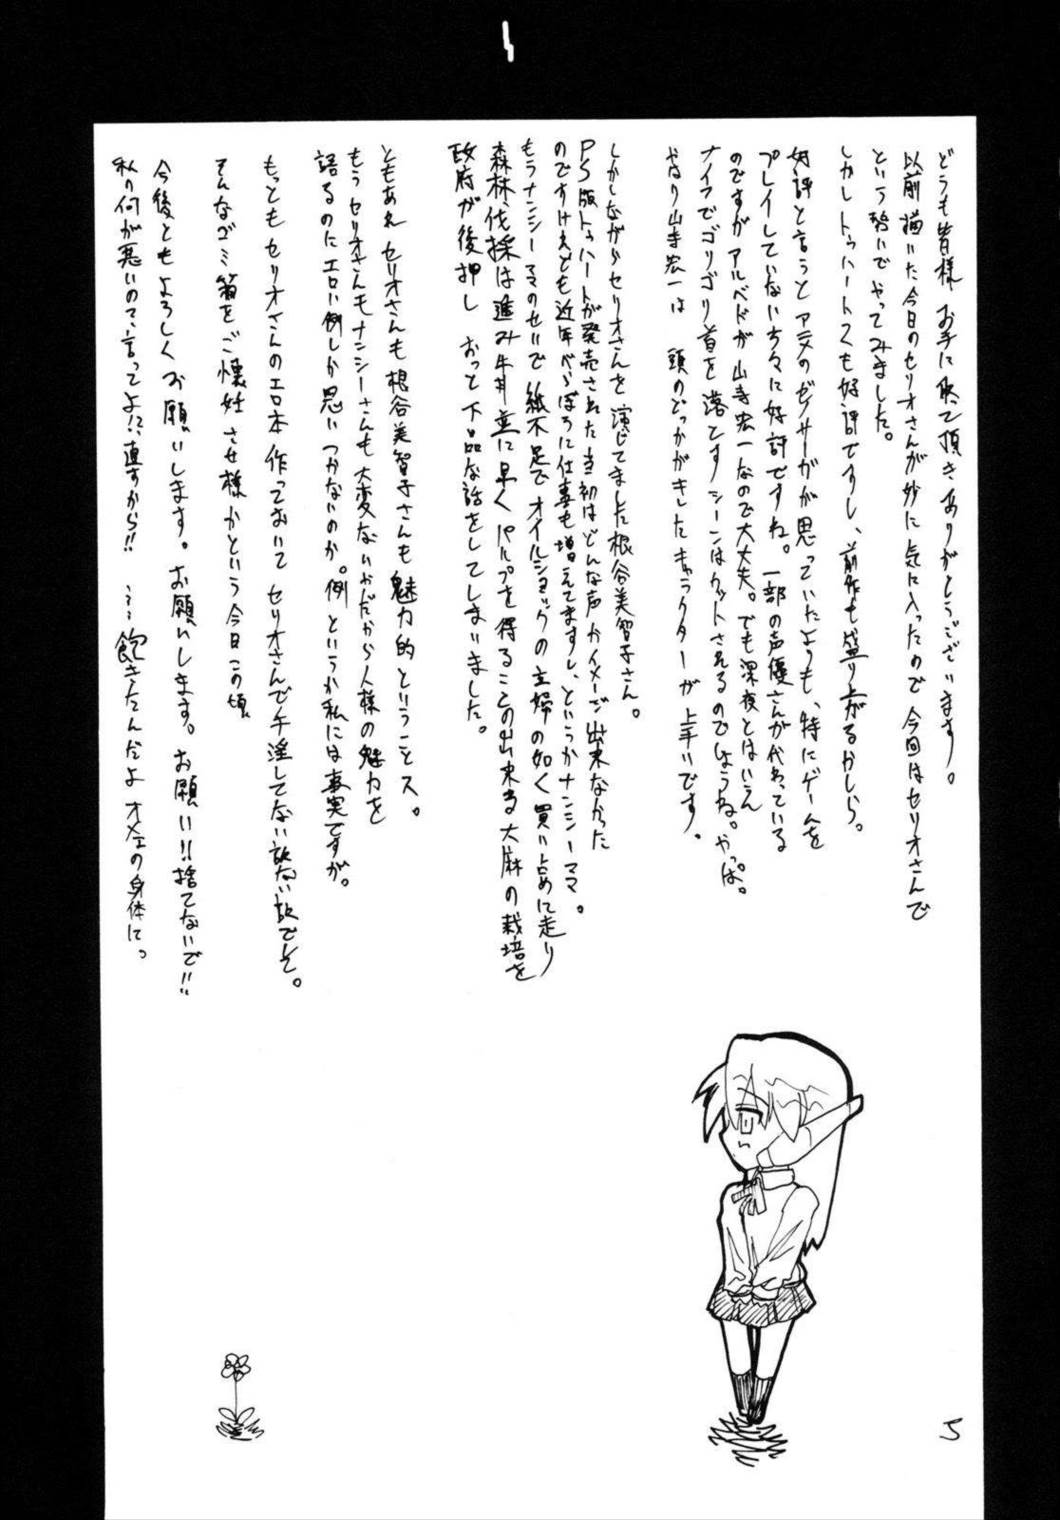 どうも皆様 お手に取て頂きありがとうございます。
以前描いた今日のセリオさんが妙に気に入ったので今回はセリオさんで
という勢いでやってみました。
しかしトゥハート2も好評ですし、前作も盛り上がるかしら。
好評と言うとアニメのゼノサーガが思っていたよりも、特にゲームを
プレイしていない方々に好評ですね。一部の声優さんが代わっている
のですがアルベドが山寺宏一なので大丈夫。でも深夜とはいえ
ナイフでゴリゴリ首を落とすシーンはカットされるのでしょうね。やっぱ。
やはり山寺宏一は 頭のどっかがキレたキャラクターが上手いです。
しかしながらセリオさんを演じてました根谷美智子さん。
PS版トゥハートが発売された当初はどんな声かイメージ出来なかった
のですけれども近年べらぼうに仕事も増えてますし、というかナンシーママ。
もうナンシーママのせいで紙不足でオイルショックの主婦の如く買い占めに走り
森林伐採は進み牛丼並に早くパルプを得ることの出来る大麻の栽培を
政府が後押し おっと下品な話をしてしまいました。
ともあれセリオさんも根谷美智子さんも魅力的ということス。
もうセリオさんもナンシーさんも大変ないかだから人様の魅力を
語るのにエロい例しか思いつかないのか。例というか私には事実ですが。
もっともセリオさんのエロ本作っておいてセリオさんで手淫してない訳ない訳でして。
そんなゴミ箱をご懐妊させ様かという今日この頃
今後ともよろしくお願いします。お願いします。お願い!!捨てないで!!
私の何が悪いの、言ってよ!?直すから!! ……飽きたんだよオメェの身体に。
5